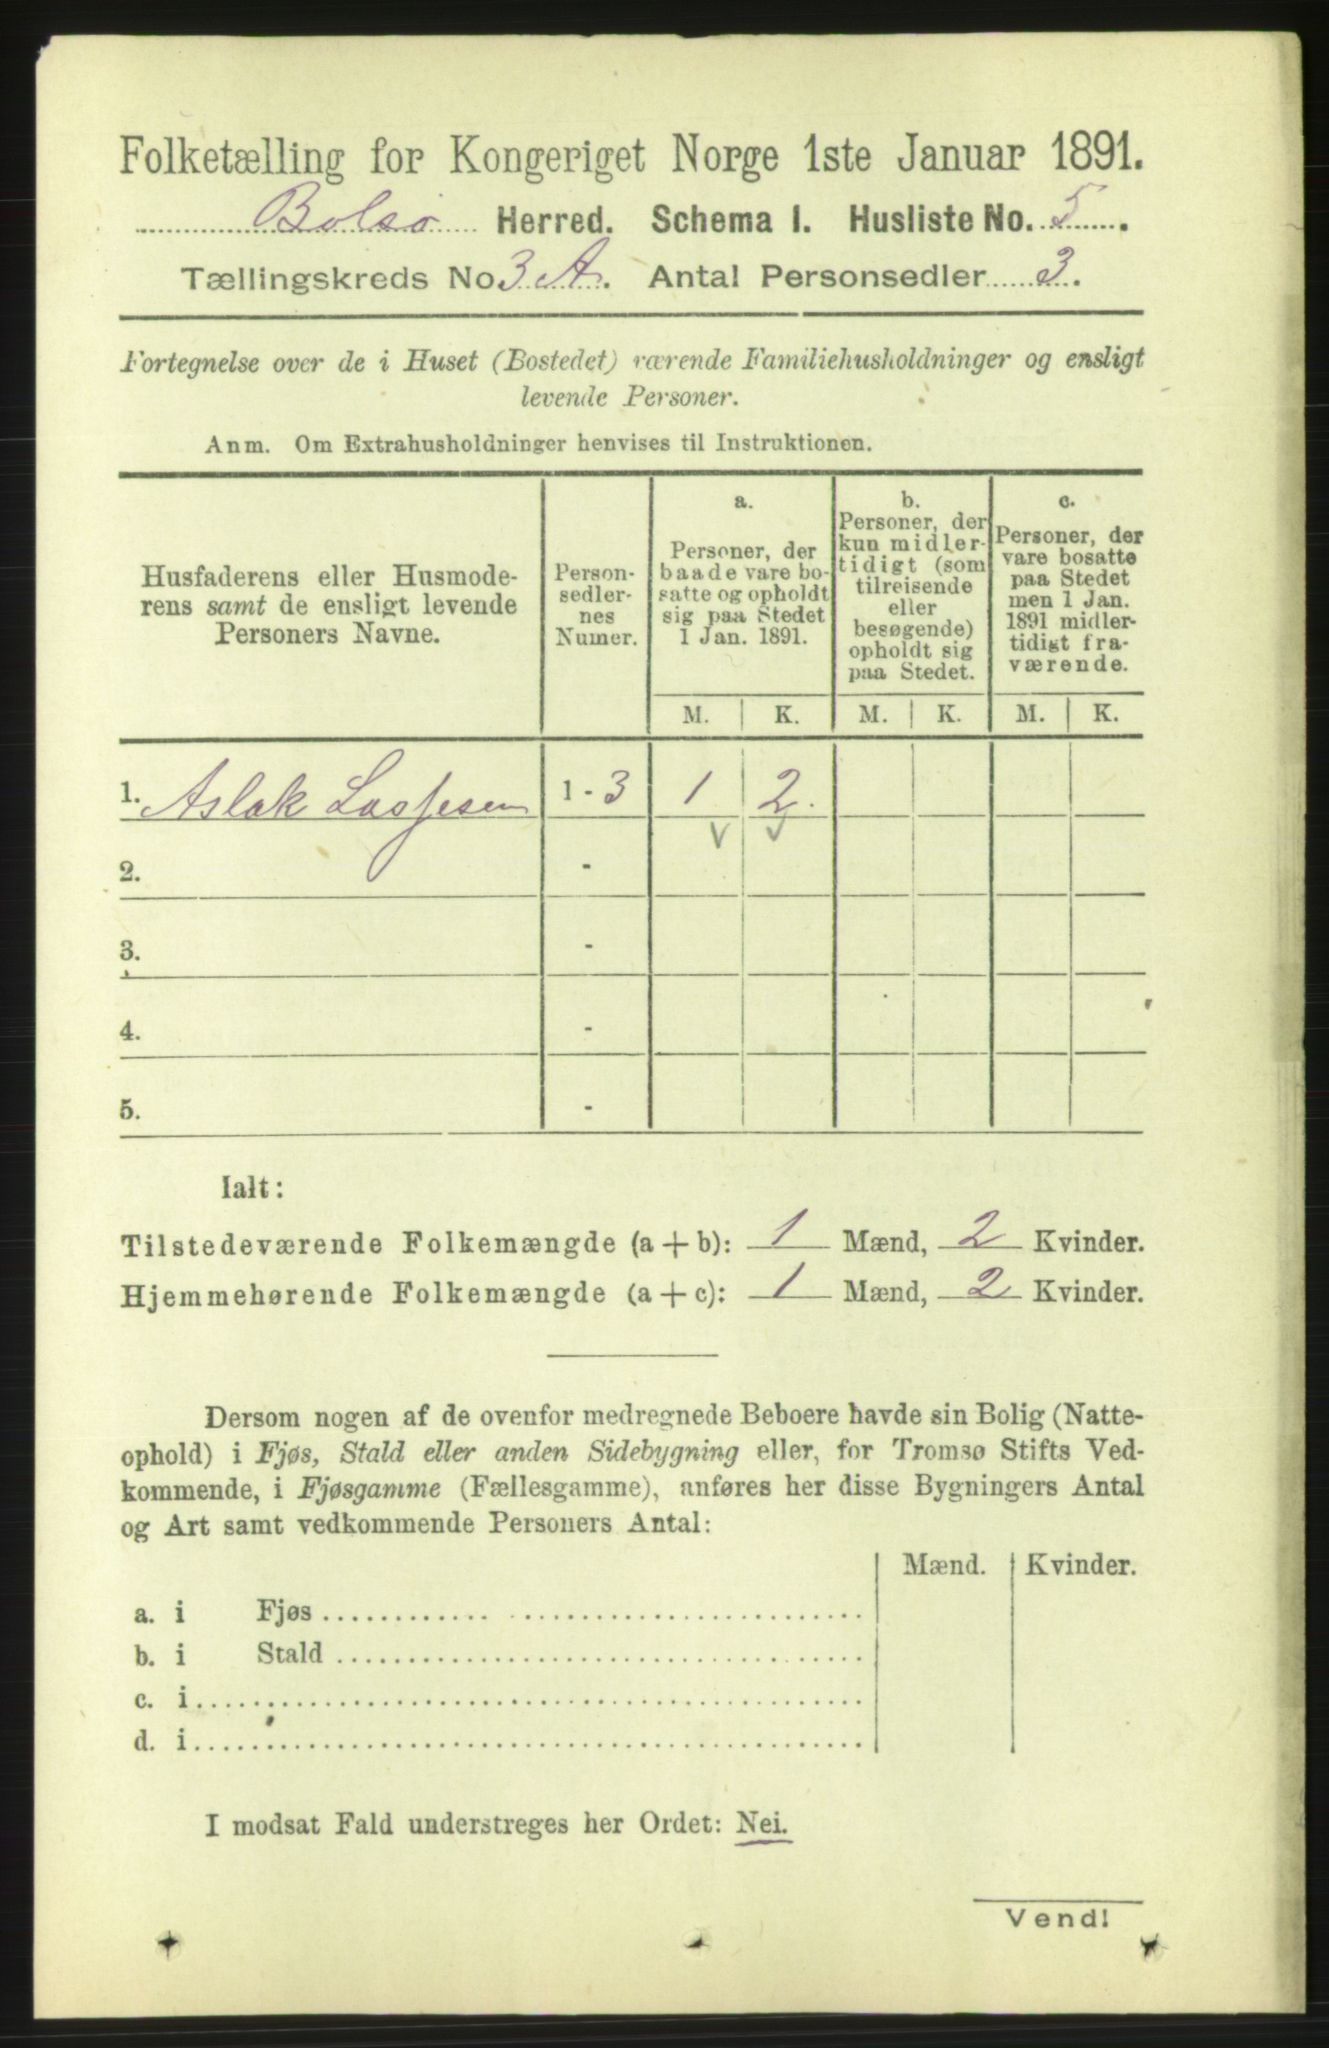 Folketælling for Kongeriget Norge 1ste Januar 1891.
Bolsø Herred. Schema I. Husliste No. 5.
Tællingskreds No. 3 A. Antal Personsedler 3.
Fortegnelse over de i Huset (Bostedet) værende Familiehusholdninger og ensligt
levende Personer.
Anm. Om Extrahusholdninger henvises til Instruktionen.
Husfaderens eller Husmode-
rens samt de ensligt levende
Personers Navne.
Person-
sedler-
nes
Numer.
a.
Personer, der
baade vare bo-
satte og opholdt
sig paa Stedet
1 Jan. 1891.
b.
Personer, der
kun midler-
tidigt (som
tilreisende
eller
besøgende)
opholdt sig
paa Stedet.
c.
Personer, der
vare bosatte
paa Stedet
men 1 Jan.
1891 midler-
tidigt fra-
værende.
M. K. M. K. M. K.
1. Aslak 1 - 3 1 2.
2. -
3. -
4. -
5. -
Ialt:
Tilstedeværende Folkemængde (a + b): 1 Mænd, 2 Kvinder.
Hjemmehørende Folkemængde (a + c): 1 Mænd, 2 Kvinder.
Dersom nogen af de ovenfor medregnede Beboere havde sin Bolig (Natte-
ophold) i Fjøs, Stald eller anden Sidebygning eller, for Tromsø Stifts Ved-
kommende, i Fjøsgamme (Fællesgamme), anføres her disse Bygningers Antal
og Art samt vedkommende Personers Antal:
Mænd. Kvinder.
a. i Fjøs
b. i Stald
c. i
d. i
I modsat Fald understreges her Ordet: Nei.
Vend!